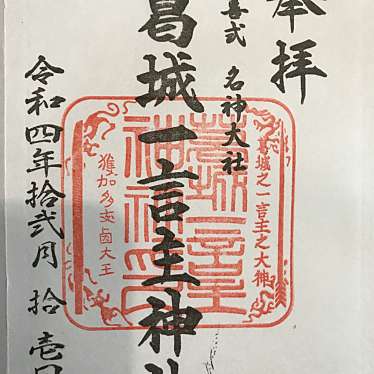 奉拝
喜式 名神大社
葛城一言主神
葛城之一言主之大神
獲加多支鹵大王
令和四年拾弐月拾壱日